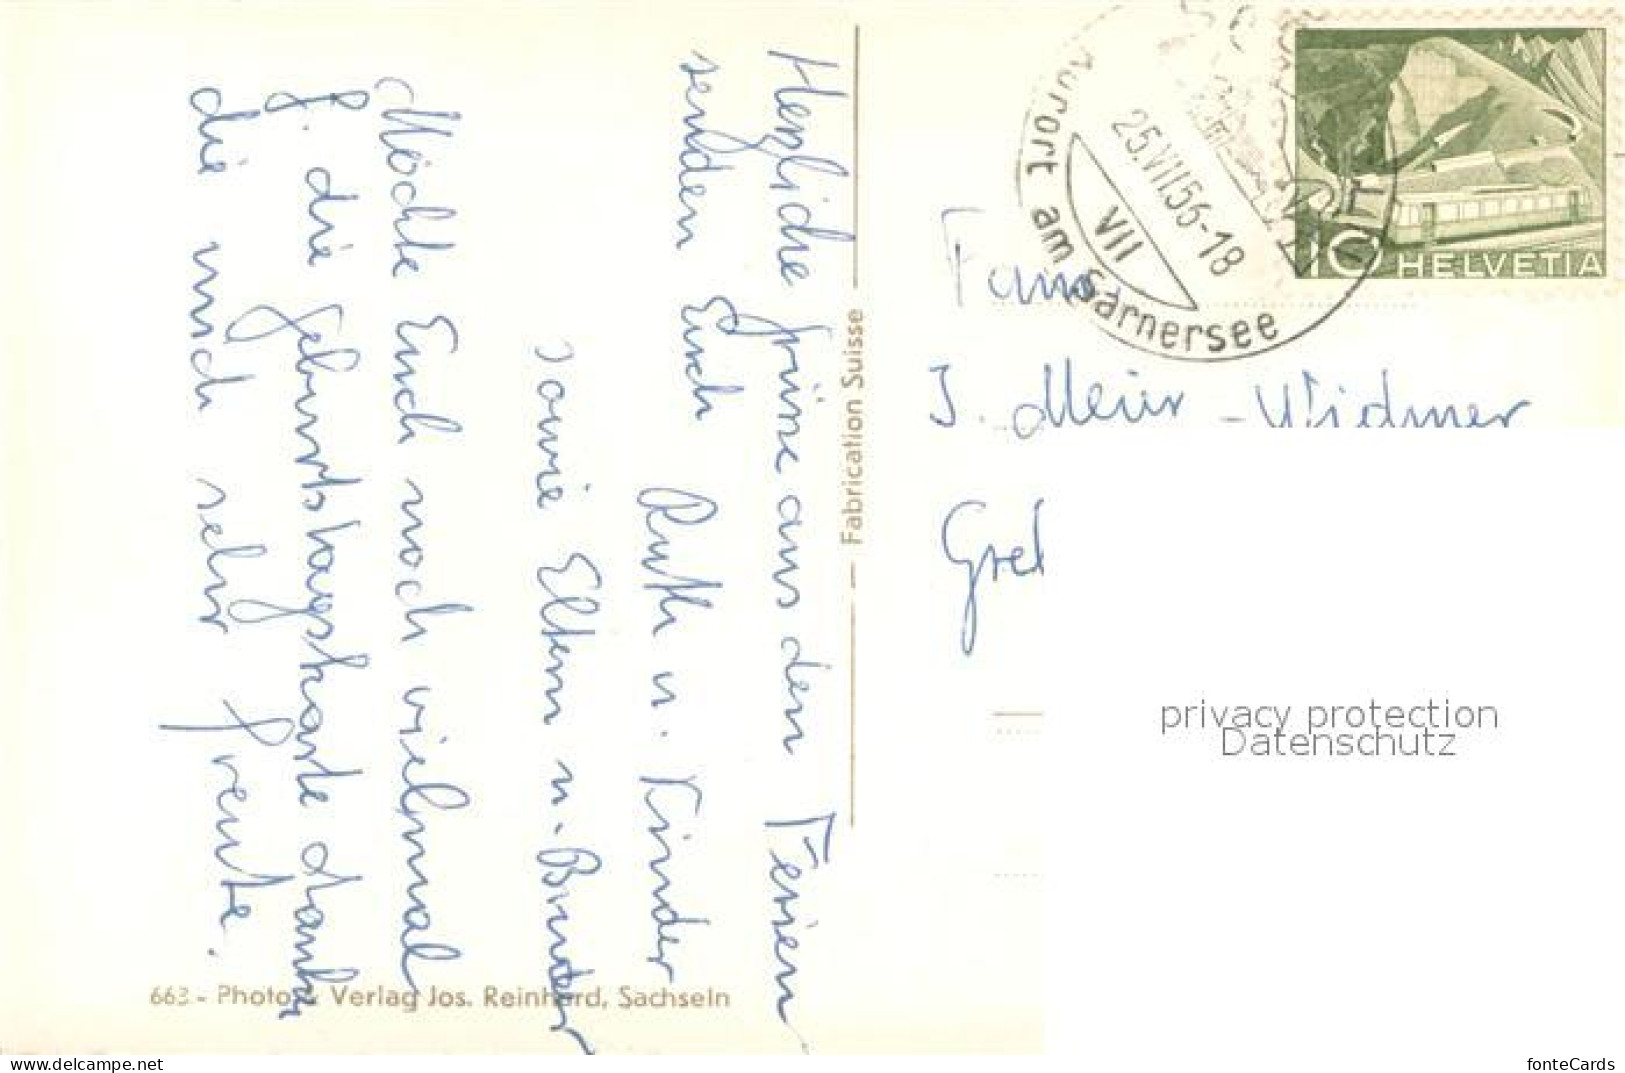 Herzliche Grüsse aus den Ferien
senden Euch
Ruth u. Kinder
sowie Eltern u. Bruder
Möchte Euch noch vielmal
f. die Geburtstagskarte danken
die mich sehr freute.
Fabrication Suisse
663 - Photo & Verlag Jos. Reinhard, Sachseln
Kurort am Sarnersee
25.VII.56-18
VII
10 HELVETIA
Fam.
J. Meier-Widmer
privacy protection
Datenschutz
www.delcampe.net
fonteCards